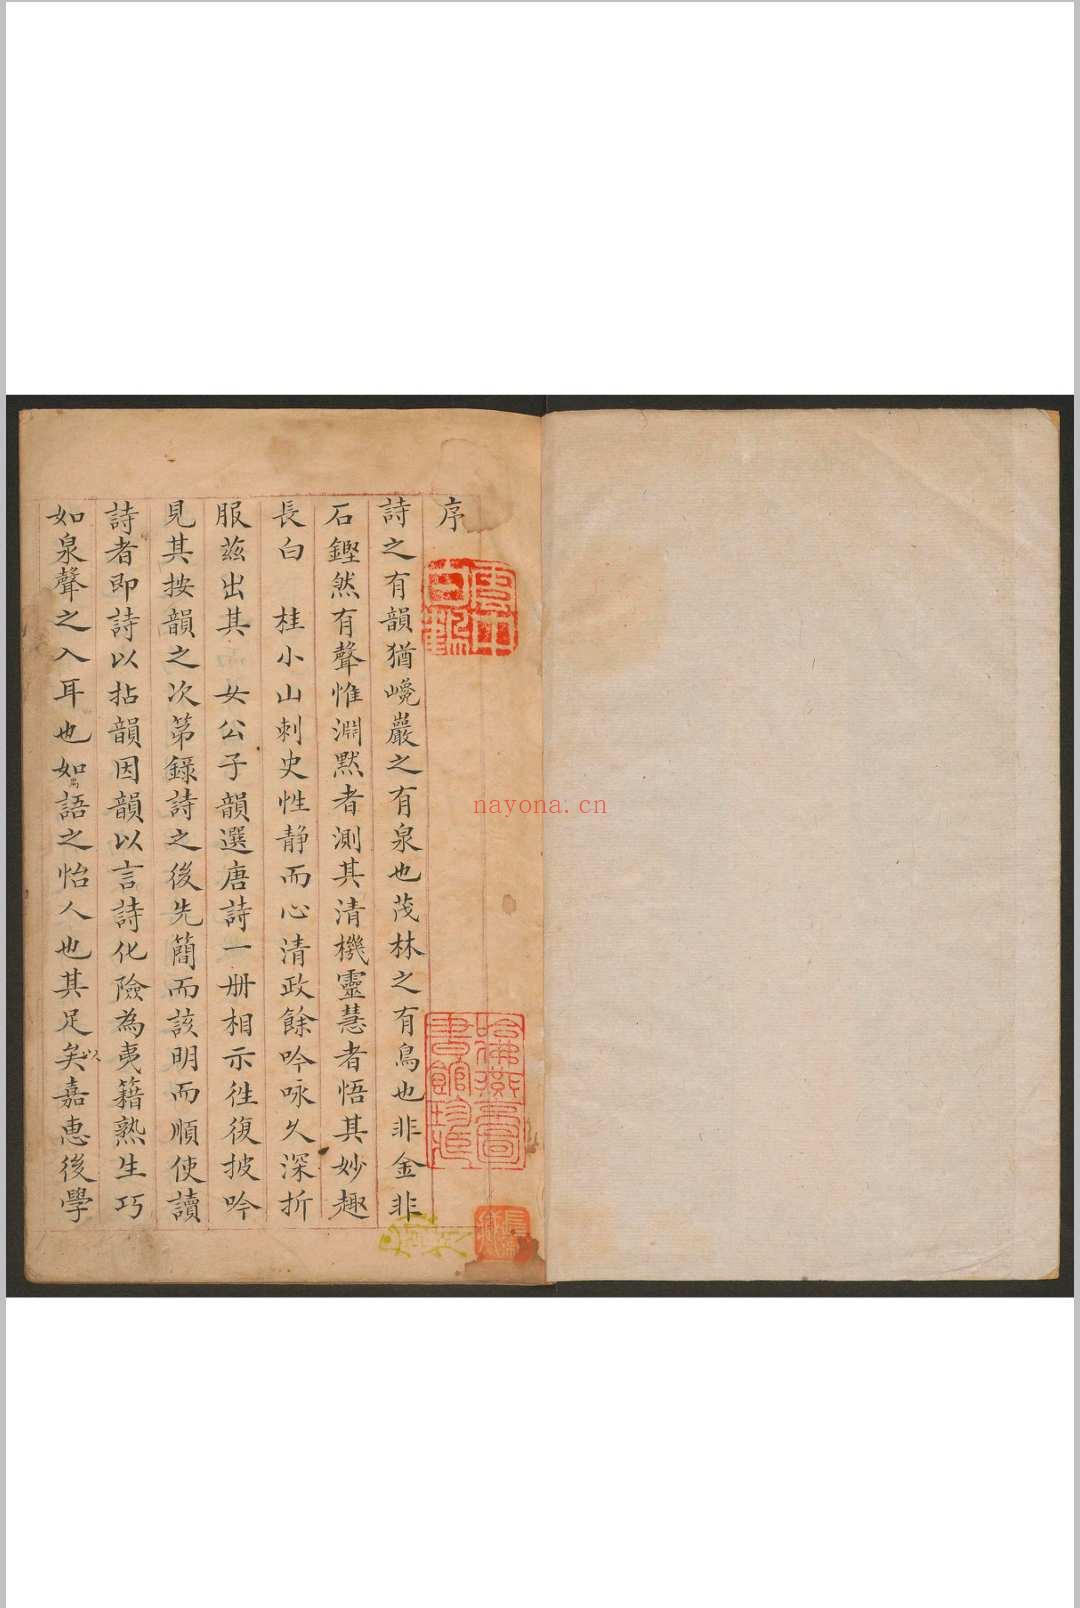 序
詩之有韻猶巉巖之有泉也茂林之有鳥也非金非
石鏗然有聲惟淵默者測其清機靈慧者悟其妙趣
長白　桂小山刺史性靜而心清政餘吟咏久深折
服茲出其　女公子韻選唐詩一册相示徃復披吟
見其按韻之次第錄詩之後先簡而該明而順使讀
詩者即詩以拈韻因韻以言詩化險為夷籍熟生巧
如泉聲之入耳也如鳥語之怡人也其足以矣嘉惠後學
哈佛燕京圖書館珍藏
nayona.cn